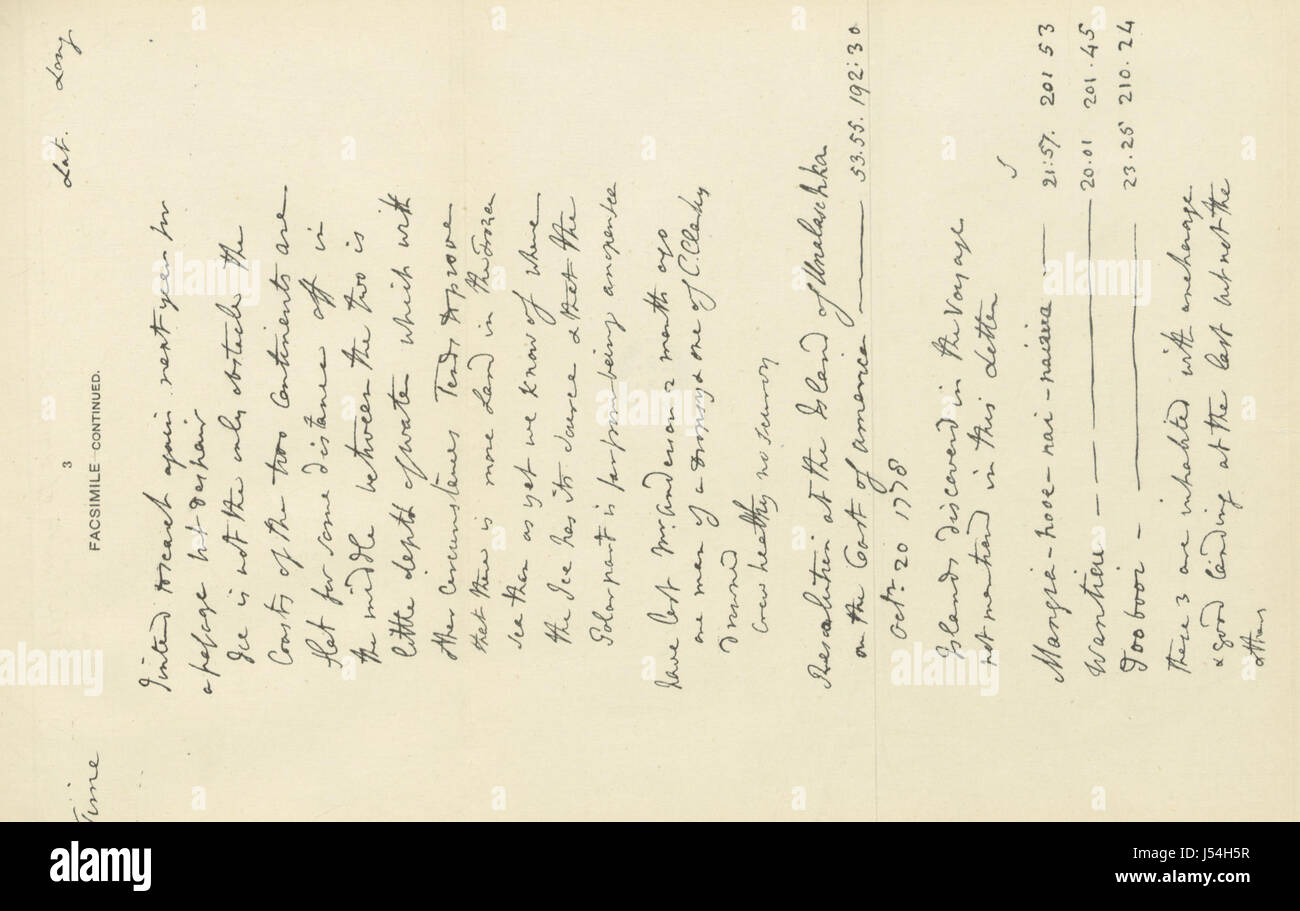 3
FACSIMILE—CONTINUED.
Time Lat. Long
I intend to search again next year for
a passage but despair
Ice is not the only obstacle the
Coasts of the two Continents are
flat for some distance off in
the middle between the two is
little depth of water which with
other Circumstances Tends to prove
that there is more Land in the Frozen
Sea than as yet we know of where
the Ice has its Source & that the
Polar part is far from being an open Sea
have lost Mr. Anderson 2 months ago
one man of a Dropsy & one of C. Clerkes
Drowned
Crew healthy no Scurvy
Resolution at the Island of Unalaschka
on the Coast of America — 53.55. 192:30
Octr. 20 1778
Islands discovered in the Voyage
not mentiond in this letter
Mangia-nooe-nai-naiwa — 21:57. 201 53
Wautieu — 20.01 201.45
Toobooi — 23.25 210.24
these 3 are inhabited with anchorage
& good landing at the last but not the
others
alamy
Image ID: J54H5R
www.alamy.com